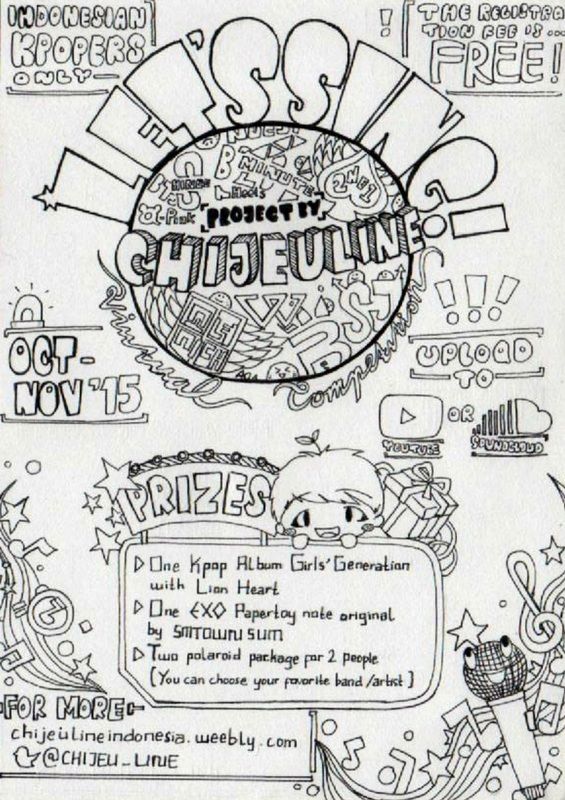 INDONESIAN
KPOPERS
ONLY
! THE REGISTRA
TION FEE IS...
FREE!
LET'S SING!
NU'EST
B
4MINUTE
2NE1
SHINEE
A-Pink
[PROJECT BY]
CHIJEULINE
W
B2ST
AOA
Virtual
Competition
OCT-
NOV '15
!!!
UPLOAD
TO
OR
YOUTUBE
SOUNDCLOUD
PRIZES
One Kpop Album Girls' Generation
with Lion Heart
One EXO Papertoy note original
by SMTOWN SUM
Two polaroid package for 2 people
[You can choose your favorite band/artist]
FOR MORE
chijeulineindonesia.weebly.com
@CHIJEU_LINE